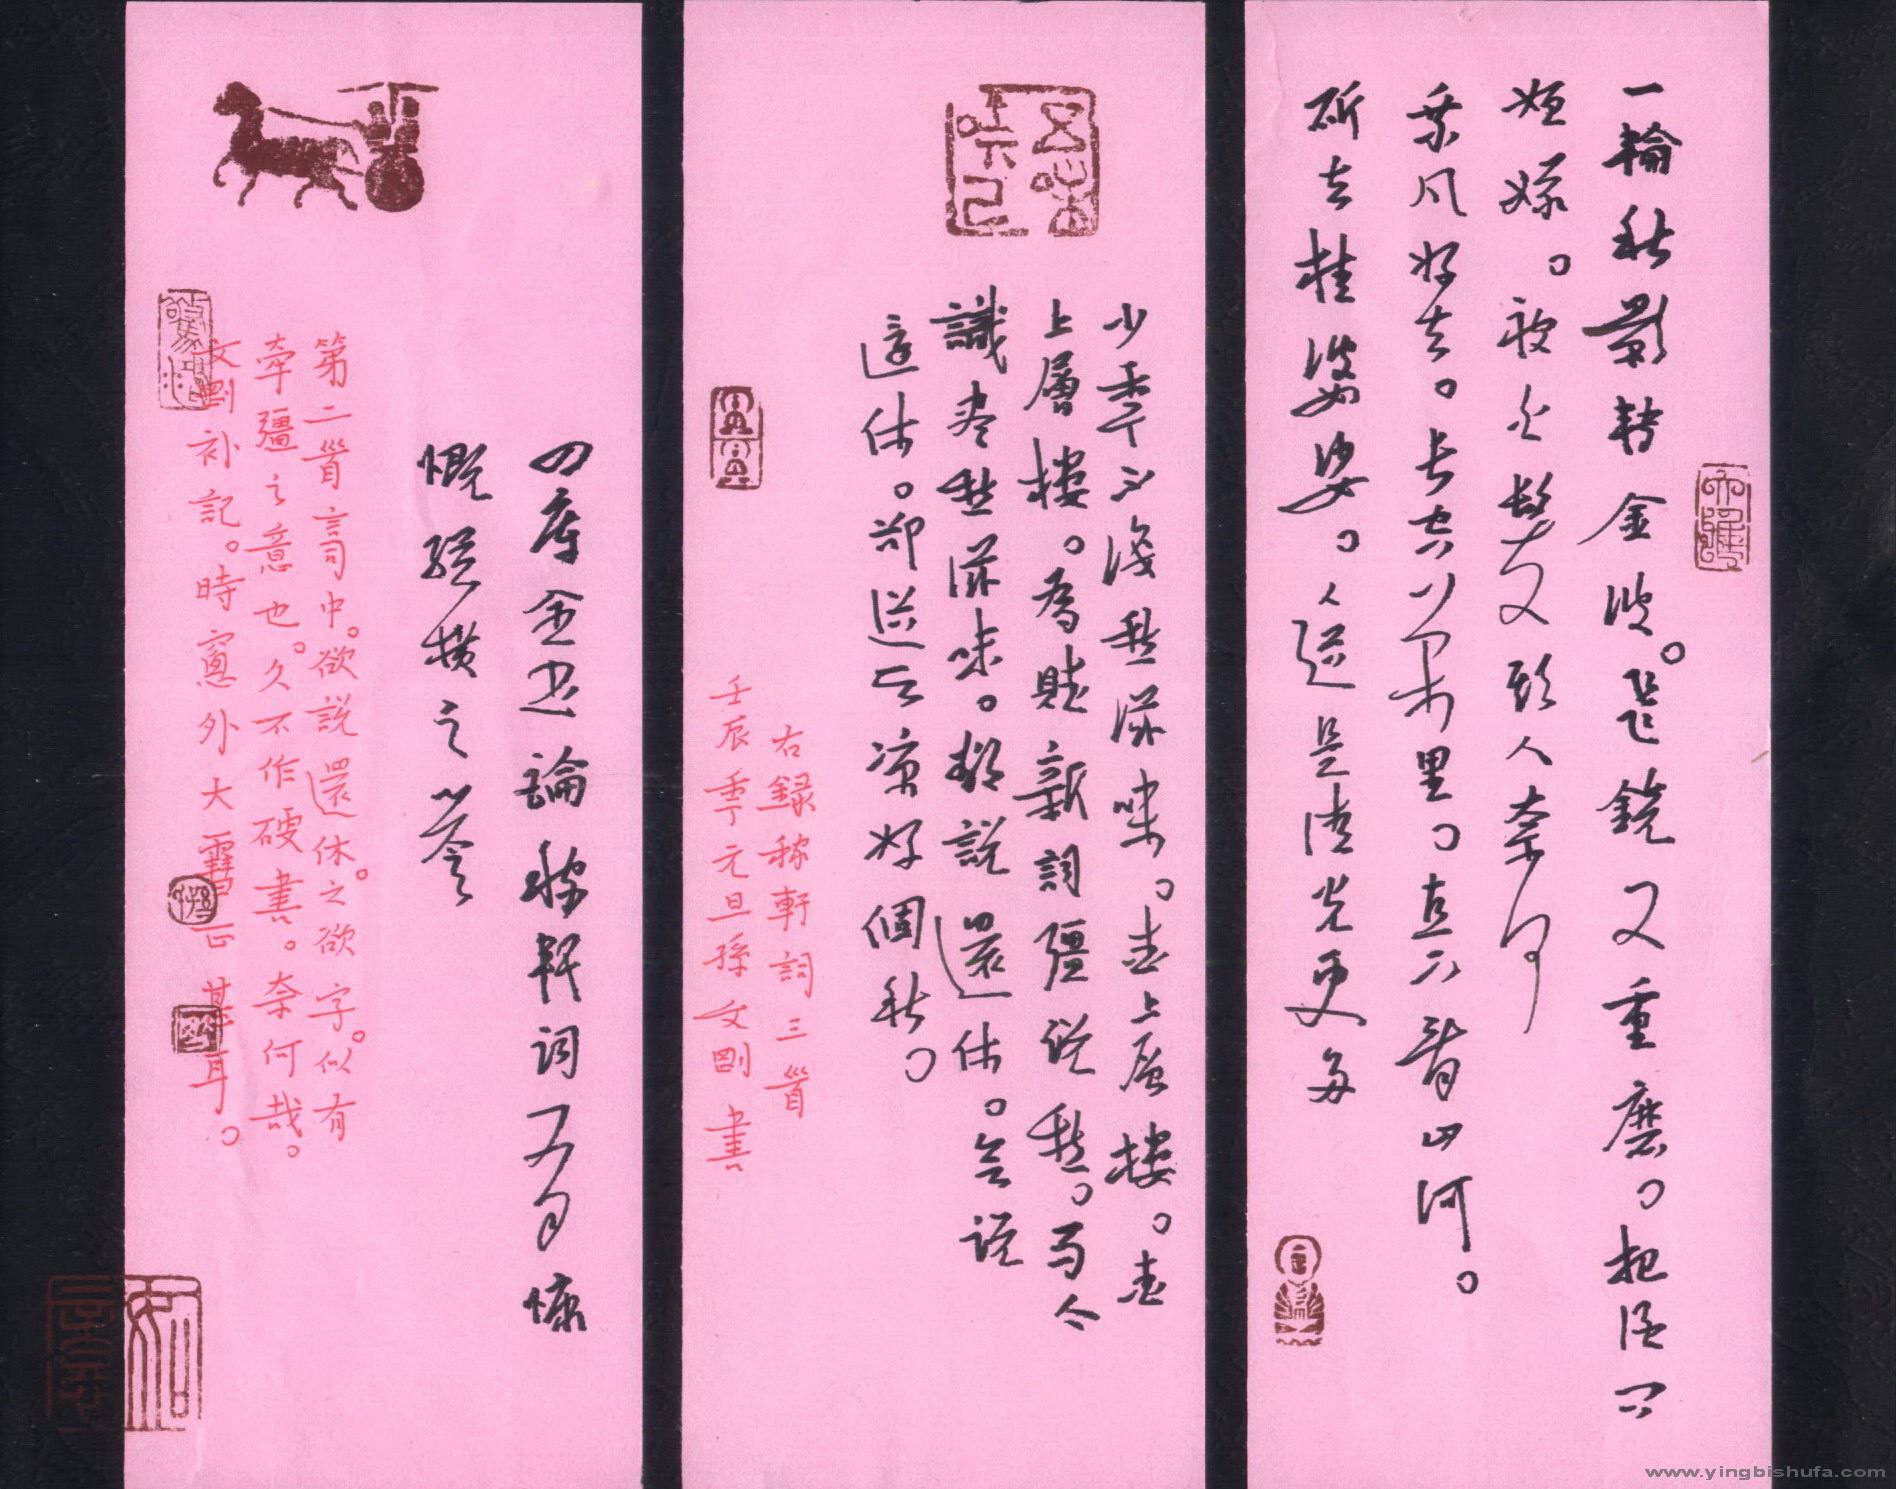 一輪秋影轉金波。飛鏡又重磨。把酒問
姮娥。被白髮欺人奈何
乘風好去。長空萬里。直下看山河。
斫去桂婆娑。人道是清光更多
少年不識愁滋味。愛上層樓。愛
上層樓。為賦新詞彊說愁。而今
識盡愁滋味。欲說還休。欲說
還休。卻道天涼好個秋。
右錄稼軒詞三首
壬辰年元旦孫文剛書
四庫全書論稼軒詞有慷
慨縱橫之
第二首詞中。欲說還休。之欲字。似有
牽彊之意也。久不作硬書。奈何哉。
文剛補記。時窗外大雪正甚耳。
www.yingbishufa.com